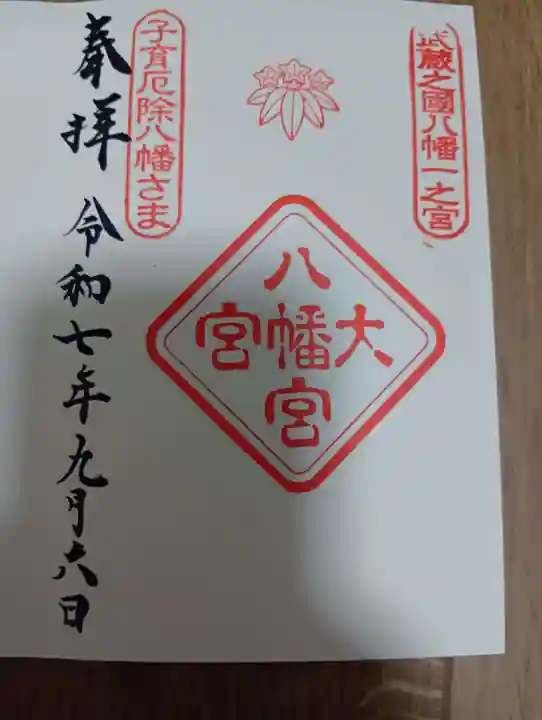 武蔵之國八幡一之宮
八幡宮
大幡宮
子育厄除八幡さま
奉拝 令和七年九月六日